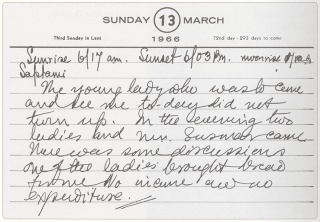 SUNDAY 13 MARCH
Third Sunday in Lent 1966 72nd day - 293 days to come
Sunrise 6/17 am. Sunset 6/03 Pm. moonrise
Saptami
The young lady who was to come
and see me to-day did not
turn up. In the evening two
ladies and Mr. Susman came.
There was some discussions
one of the ladies brought bread
for me No income and no
expenditure.